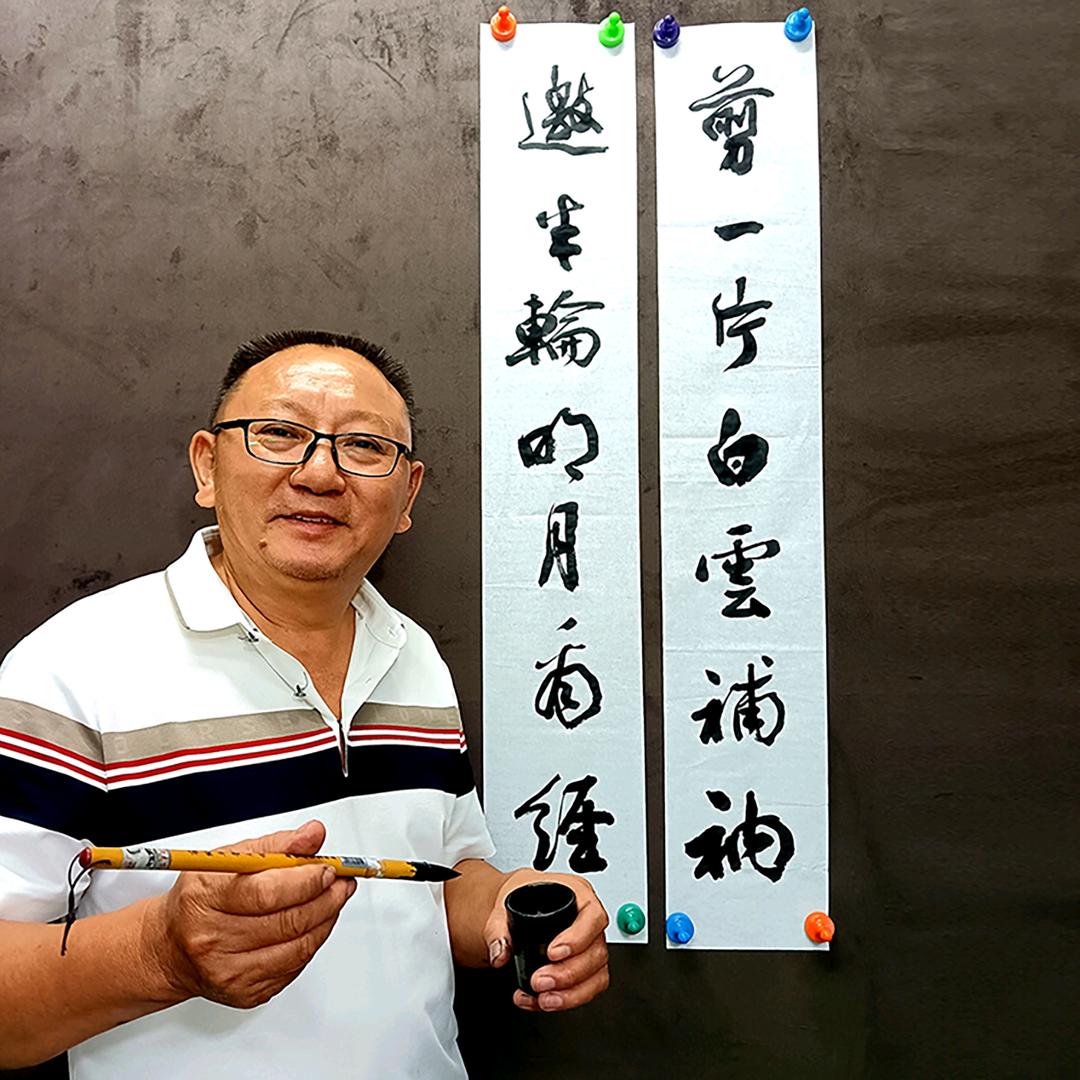 剪一片白雲補衲
邀半輪明月看經